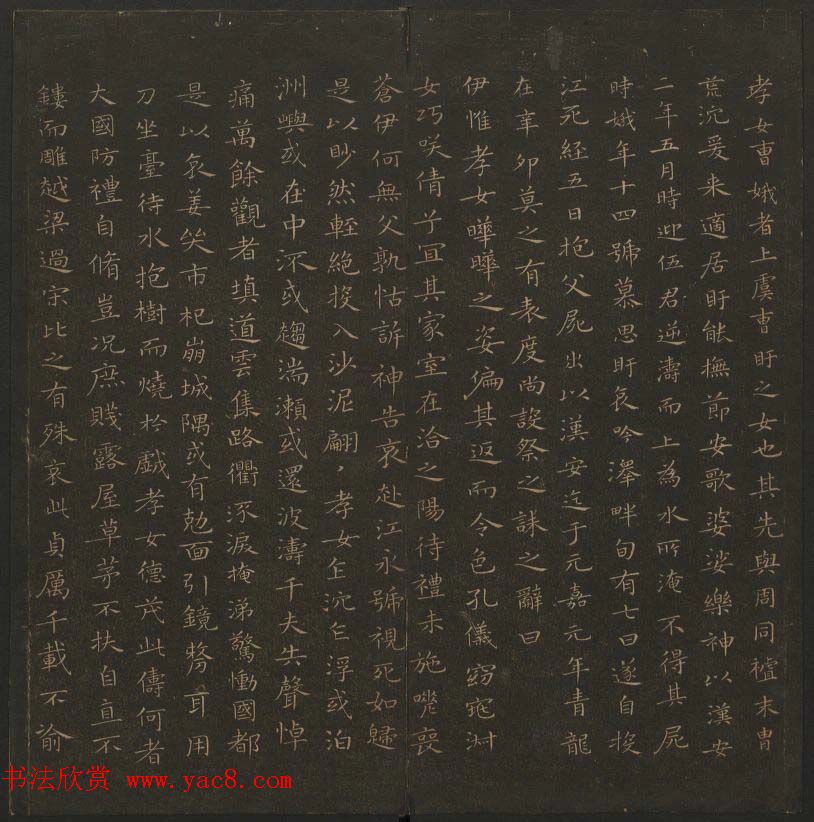 孝女曹娥者上虞曹盱之女也其先與周同祖末胄
荒沉爰来適居盱能撫節安歌婆娑樂神以漢安
二年五月時迎伍君逆濤而上為水所淹不得其屍
時娥年十四號慕思盱哀吟澤畔旬有七日遂自投
江死経五日抱父屍出以漢安迄于元嘉元年青龍
在辛卯莫之有表度尚設祭之誄之辭曰
伊惟孝女曄曄之姿偏其返而令色孔儀窈窕淑
女巧咲倩兮冝其家室在洽之陽待禮未施嗟喪
蒼伊何無父孰怙訴神告哀赴江永號視死如歸
是以眇然輕絶投入沙泥翩〃孝女乍沉乍浮或泊
洲嶼或在中流或趨湍瀬或還波濤千夫失聲悼
痛萬餘觀者填道雲集路衢流淚掩涕驚慟國都
是以哀姜哭市杞崩城隅或有剋面引鏡剺耳用
刀坐臺待水抱樹而燒於戯孝女德茂此儔何者
大國防禮自脩豈况庶賤露屋草茅不扶自直不
鏤而雕越梁過宋比之有殊哀此貞厲千載不渝
书法欣赏 www.yac8.com